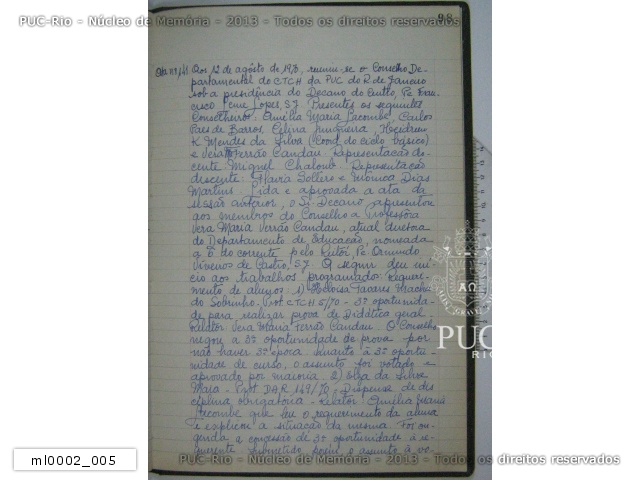 PUC-Rio - Núcleo de Memória - 2013 - Todos os direitos reservados
98
Aos 12 de agôsto de 1970, reuniu-se o Conselho De-
partamental do CTCH da PUC do R. de Janeiro
sob a presidência do Decano do Centro, Pe. Fran-
cisco Leme Lopes, S.J. Presentes os seguintes
Conselheiros: Amélia Maria Lacombe, Carlos
Paes de Barros, Celina Junqueira,
K. Mendes da Silva (Coord. do ciclo básico)
e Vera Mª Ferrão Candau. Representação do-
cente: Miguel Chaloub. Representação
discente: Maria Sollero e Mônica Dias
Martins. Lida e aprovada a ata da
sessão anterior, o Sr. Decano apresentou
aos membros do Conselho a Professôra
Vera Maria Ferrão Candau, atual diretora
do Departamento de Educação, nomeada
a 6 do corrente pelo Reitor, Pe. Ormindo
Viveiros de Castro, S.J. A seguir deu iní-
cio aos trabalhos programados: Requeri-
mento de alunos: 1) Heloisa Tavares Macha-
do Sobrinho - Prot. CTCH 5/70 - 3ª oportunida-
de para realizar prova de Didática geral.
Relator Vera Maria Ferrão Candau. O Conselho
negou a 3ª oportunidade de prova por
não haver 3ª época. Quanto à 3ª oportu-
nidade de curso, o assunto foi votado e
aprovado por maioria. 2) Elsa da Silva
Maia - Prot. DAR 149/70 - Dispensa de dis-
ciplina obrigatória - Relator: Amélia Maria
Lacombe que leu o requerimento da aluna
e explicou a situação da mesma. Foi
a concessão de 3ª oportunidade à re-
querente. Submetido porém o assunto a vo-
PUC
RIO
ml0002_005
PUC-Rio - Núcleo de Memória - 2013 - Todos os direitos reservados